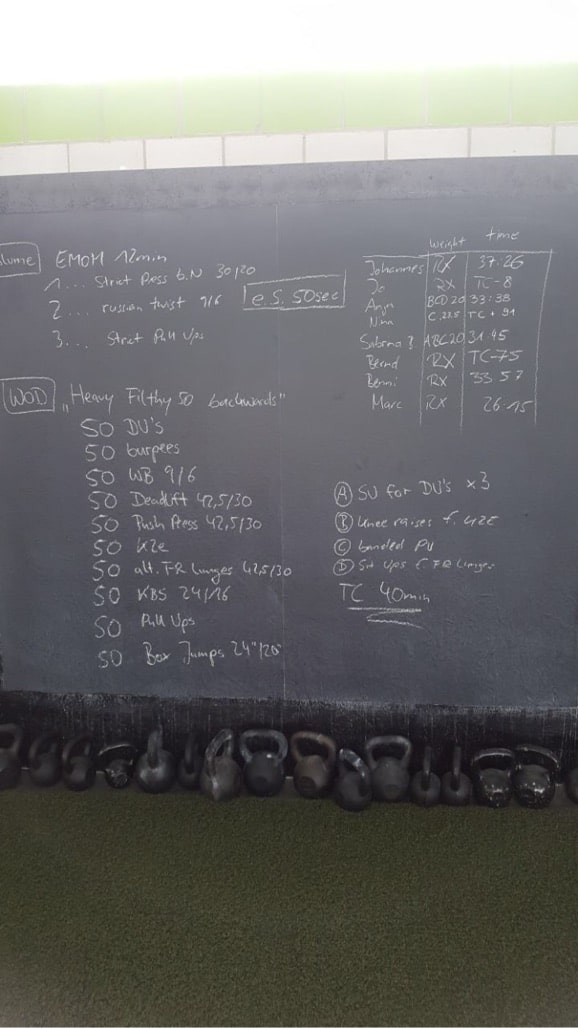 EMOM 12min
1... Strict Press b.N 30/20
2... russian twist 9/6
3... Strict Pull Ups
e.S. 50sec
WOD "Heavy Filthy 50 backwards"
50 DU's
50 burpees
50 WB 9/6
50 Deadlift 42,5/30
50 Push Press 42,5/30
50 k2e
50 alt. FR Lunges 42,5/30
50 KBS 24/16
50 Pull Ups
50 Box Jumps 24"/20"
weight time
Johannes RX 37:26
Jo RX TC-8
BCD 20 33:38
Nina C, 22.5 TC + 91
Sabrina ? ABC20 31:45
Bernd RX TC-75
Benni RX 33:57
Marc RX 26:15
A SU for DU's x3
B knee raises f. K2E
C banded PU
D Sit Ups f FR Lunges
TC 40min